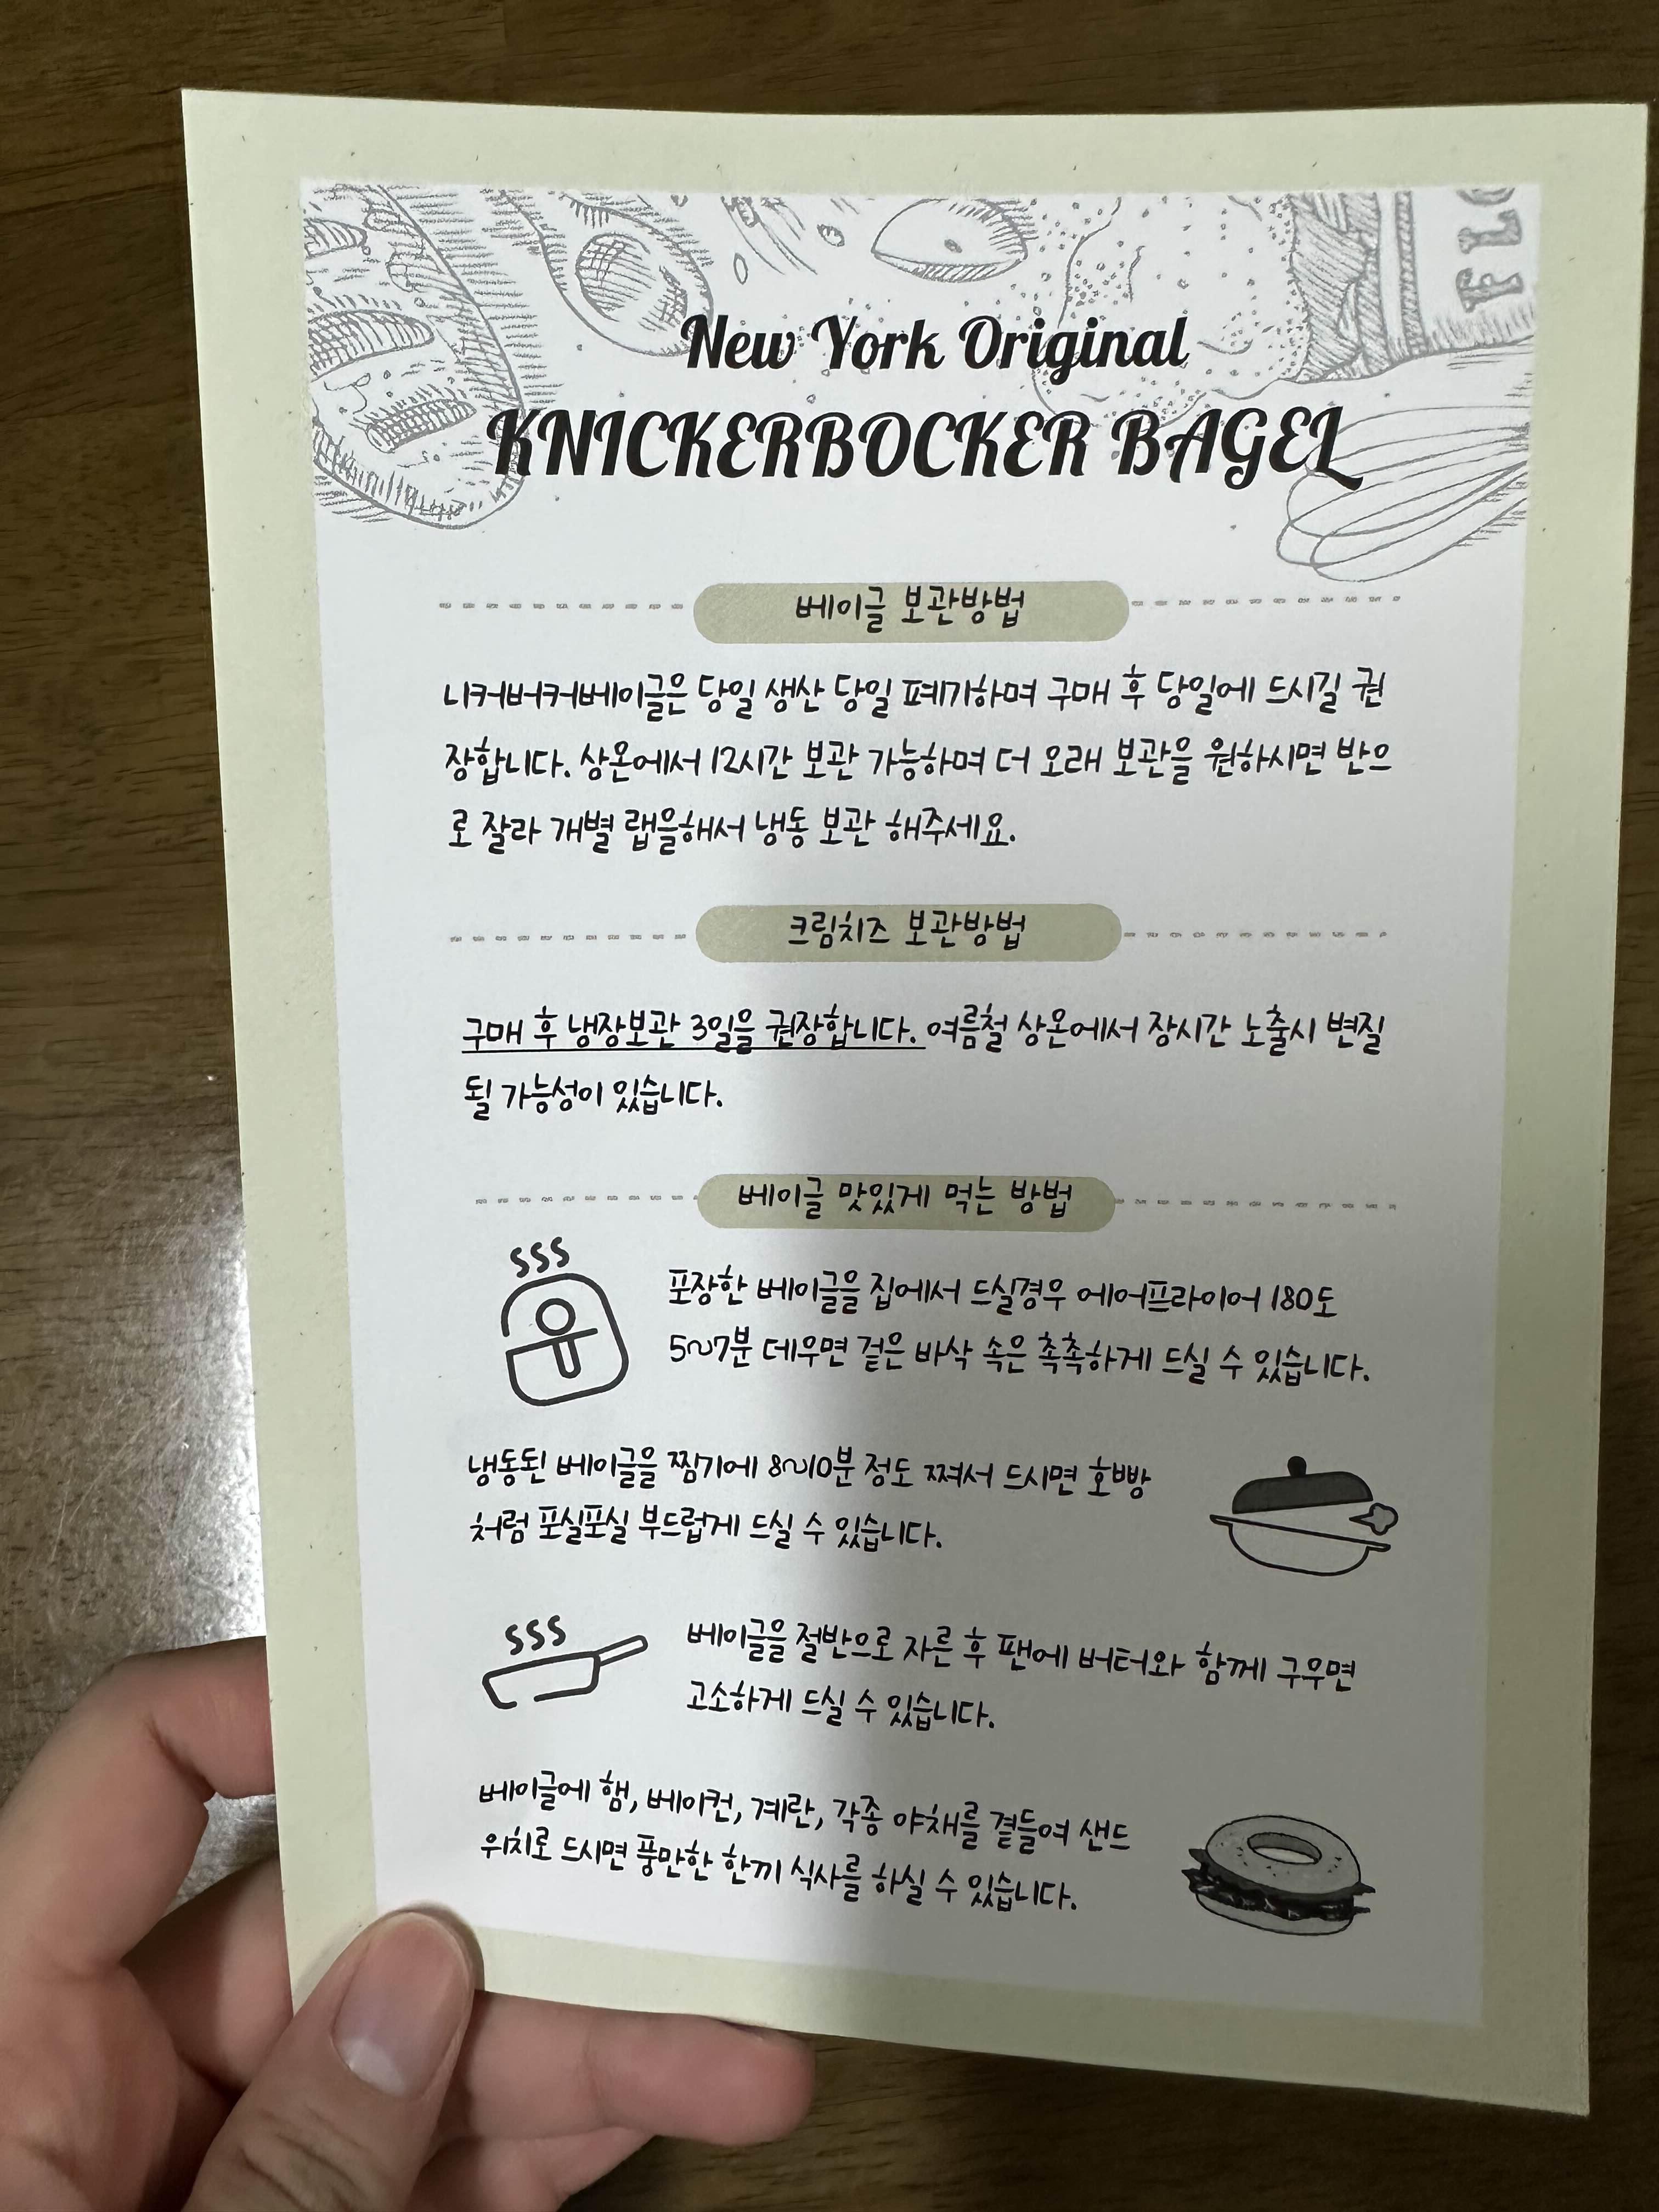 FLO
New York Original
KNICKERBOCKER BAGEL
베이글 보관방법
니커버커베이글은 당일 생산 당일 폐기하며 구매 후 당일에 드시길 권
장합니다. 상온에서 12시간 보관 가능하며 더 오래 보관을 원하시면 반으
로 잘라 개별 랩을해서 냉동 보관 해주세요.
크림치즈 보관방법
구매 후 냉장보관 3일을 권장합니다. 여름철 상온에서 장시간 노출시 변질
될 가능성이 있습니다.
베이글 맛있게 먹는 방법
포장한 베이글을 집에서 드실경우 에어프라이어 180도
5~7분 데우면 겉은 바삭 속은 촉촉하게 드실 수 있습니다.
냉동된 베이글을 찜기에 8~10분 정도 쪄서 드시면 호빵
처럼 포실포실 부드럽게 드실 수 있습니다.
베이글을 절반으로 자른 후 팬에 버터와 함께 구우면
고소하게 드실 수 있습니다.
베이글에 햄, 베이컨, 계란, 각종 야채를 곁들여 샌드
위치로 드시면 풍만한 한끼 식사를 하실 수 있습니다.